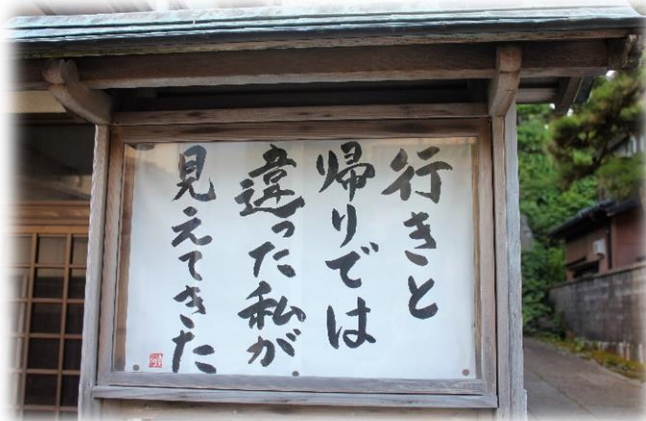 行きと
帰りでは
違った私が
見えてきた